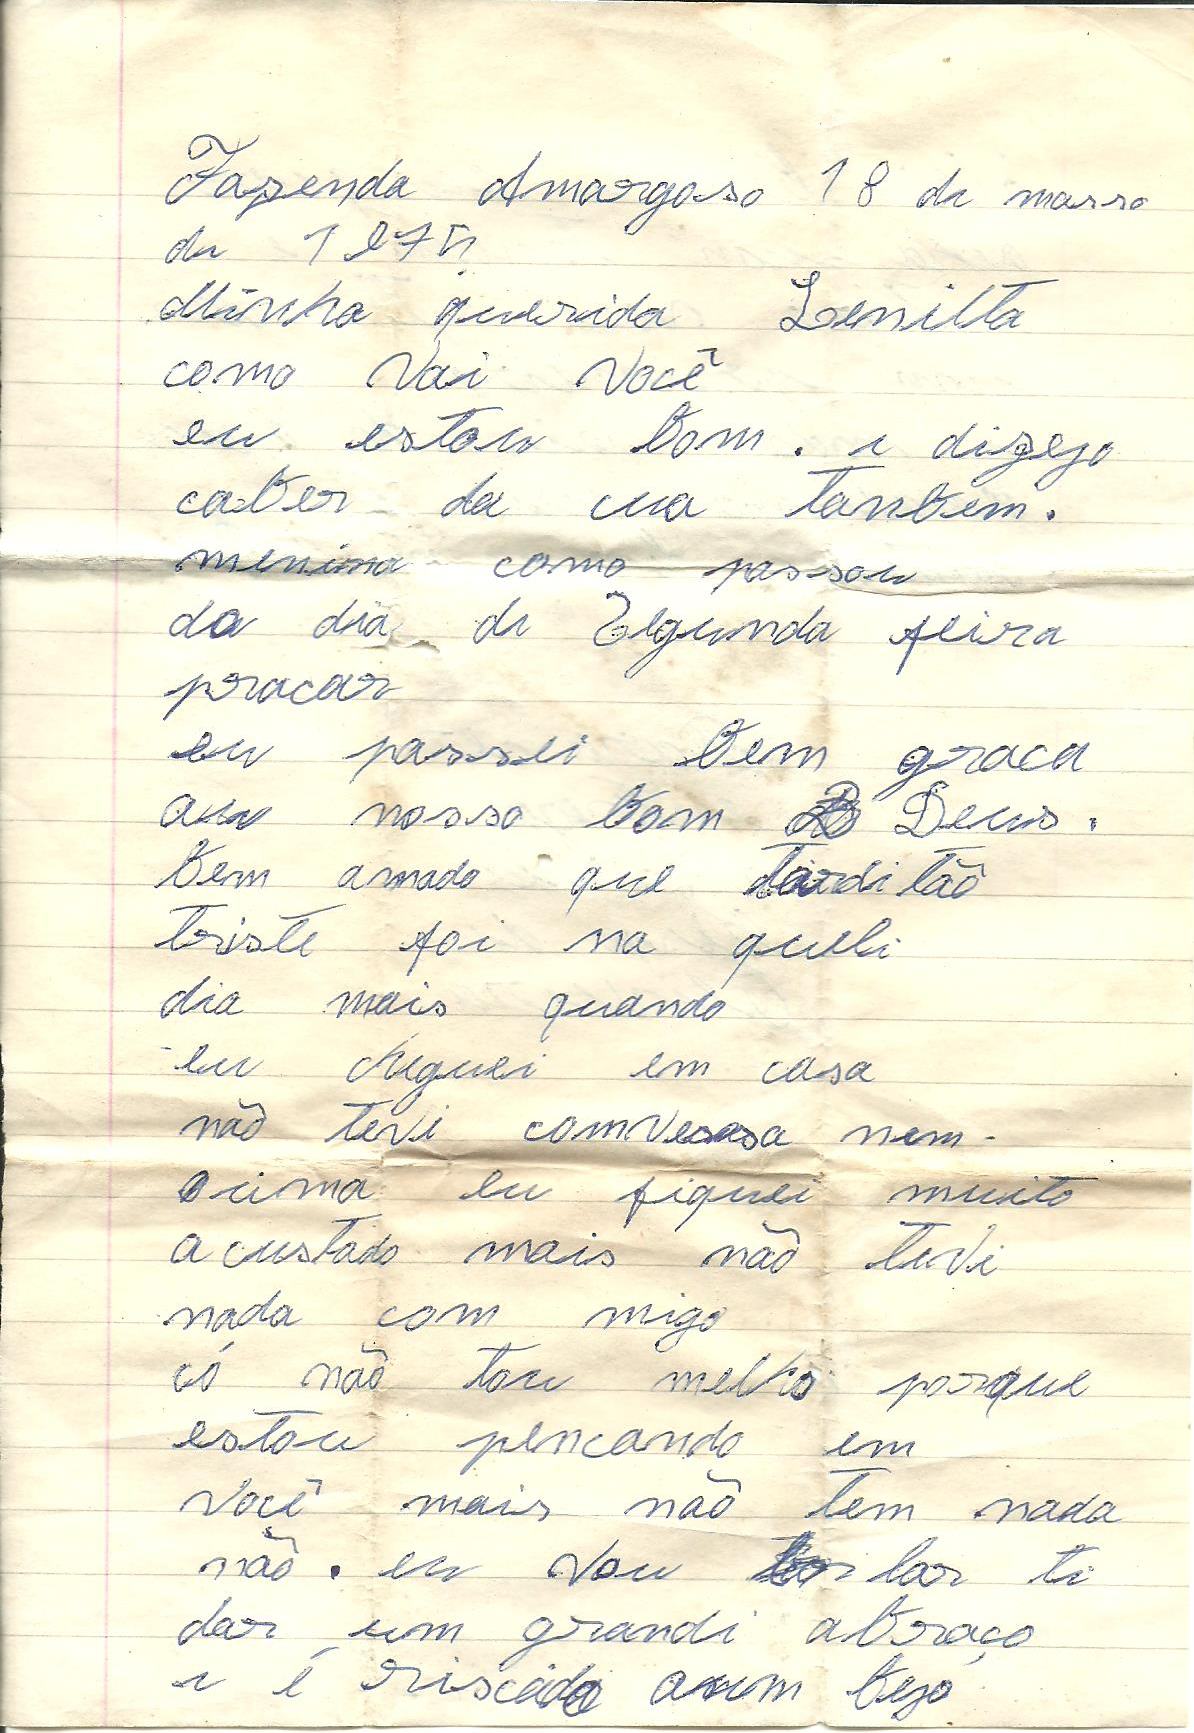 Fazenda Amargoso 18 de marso
de 197
Minha querida Zenilta
como vai você
eu estou bom . e dizejo
caber da cua tanbem.
menina como passou
do dia de Segunda feira
pracar
eu passei bem graca
au nosso bom Deus.
bem amado que tardi tão
triste foi na queli
dia mais quando
eu cheguei em casa
não tevi comvesasa nem
cima eu fiquei muito
acustado mais não tevi
nada com migo
có não tou melho porque
estou pencando em
você mais não tem nada
não . eu vou lar ti
dar um grandi abraço
e é riscado aum bejo